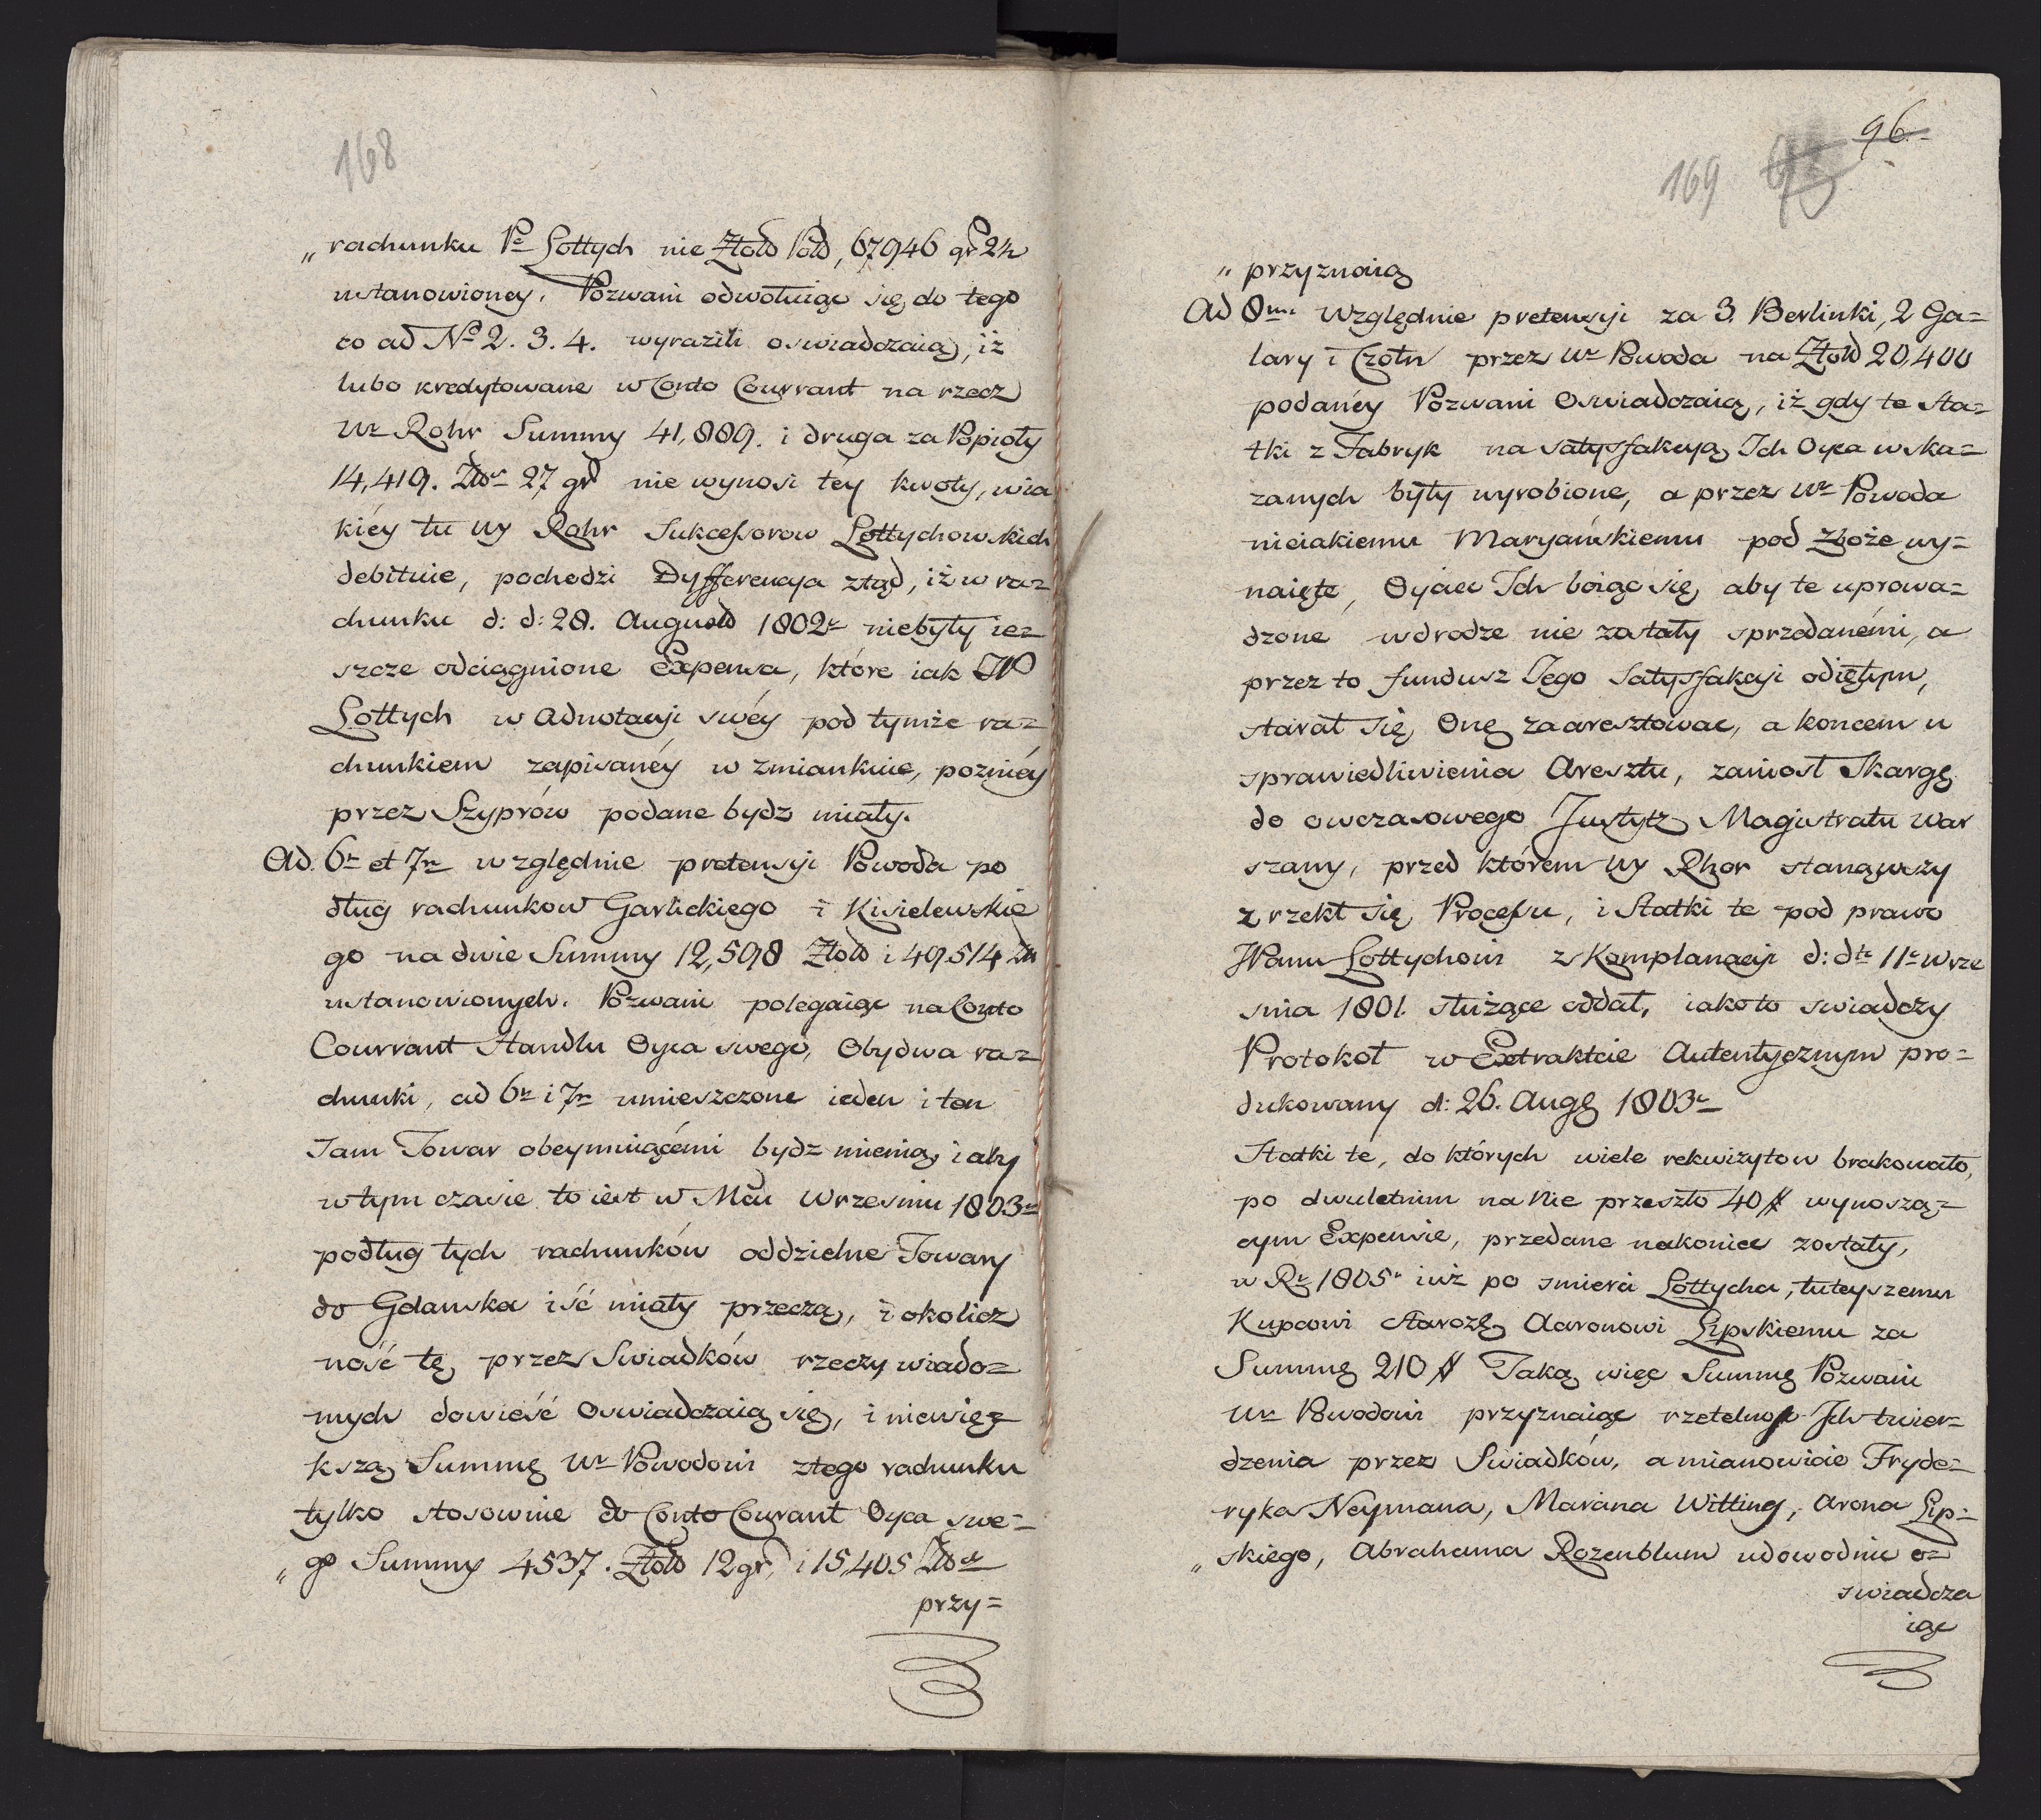 168
„ rachunku Pa Lottych nie Złotd Pold, 67946 gr 24
ustanowioney. Pozwani odwołuiąc się do tego
co ad No 2. 3. 4. wyrazili oswiadczaią, iż
lubo kredytowane w Conto Courrant na rzecz
Ur Rohr Summy 41,889. i druga za Popioły
14,419. Złor 27 gr nie wynosi téy kwoty, wia
kiéy tu Ur Rohr Sukcessorow Lottychowskich
debituie, pochodzi Dyfferencya ztąd, iż w ra=
chunku d: d: 28. Augusta 1802r niebyły ie=
szcze odciągnione Expensa, które iak JP
Lottych w Adnotacyi swéy pod tymże ra=
chunkiem zapisanéy wzmiankuie, pozniéy
przez Szyprów podane bydz miały.
Ad. 6m et 7m względnie pretensyi Powoda po
dług rachunkow Garlickiego i Kisielewskie
go na dwie Summy 12,598 Złotd i 49514 Zł
ustanowionych. Pozwani polegaiąc na Conto
Courrant Handlu Oyca swego, Obydwa ra=
chunki, ad 6m i 7m umieszczone ieden i ten
Sam Towar obeymuiącémi bydz mienią, i aby
w tym czasie to iest w Mcu Wrzesniu 1803r
podług tych rachunków oddzielne Towary
do Gdanska iść miały przeczą, i okolicz
ność tę, przez Swiadków rzeczy wiado=
mych dowieść Oswiadczaią się, i niewięk=
kszą Summę Ur Powodowi ztego rachunku
tylko stosownie do Conto Courant Oyca swe=
„ go Summy 4537. Złotd 12 gr, i 15,405 Złor
przy=
96
169
„ przyznaią
Ad 8um Względnie pretensyi za 3. Berlinki, 2 Ga=
lary i Czołn przez Ur Powoda na Złotd 20,400
podanéy Pozwani Oswiadczaią, iż gdy te Sta=
tki z Fabryk na satysfakcyą Ich Oyca wska=
zanych były wyrobione, a przez Ur Powoda
nieiakiemu Maryańskiemu pod Zboże wy=
naięte, Oyciec Ich boiąc się, aby te uprowa=
dzone wdrodze nie zostały sprzedanémi, a
przez to fundusz Jego Satysfakcyi odiętym,
starał się One zaaresztowac, a koncem u
sprawiedliwienia Aresztu, zaniosł Skargę
do owczasowego Justytz Magistratu War
szawy, przed którem Ur Rhor stanąwszy
zrzekł się Processu, i Statki te pod prawo
JPanu Lottychowi z Komplanacyi d: dto 11r Wrze
snia 1801. służące oddał, iako to swiadczy
Protokoł w Extrakcie Autentycznym pro=
dukowany d: 26. Augę 1803r
Statki te, do których wiele rekwizytow brakowało,
po dwuletnim na Nie przeszło 40 # wynoszą=
cym Expensie, przedane nakoniec zostały,
w Rr 1805r iuż po smierci Lottycha, tuteyszemu
Kupcowi Starozę Aaronowi Lipskiemu za
Summę 210 # Taką więc Summę Pozwani
Ur Powodowi przyznaiąc rzetelność Ich twier=
dzenia przez Swiadków, a mianowicie Fryde=
ryka Neymana, Mariana Witting, Arona Lip=
„ skiego, Abrahama Rozenblum udowodnić o=
swiadcza
iąc